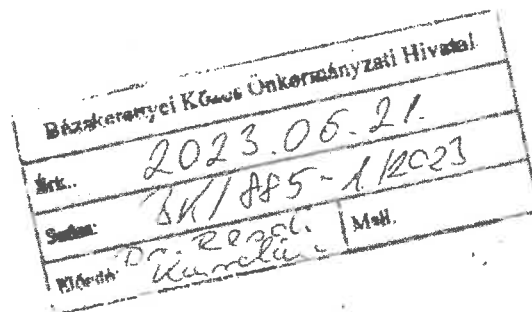 Bázakerettyei Közös Önkormányzati Hivatal
Érk.: 2023.06.21.
Szám: BK/885-1/2023
Előadó: Dr. Mell.